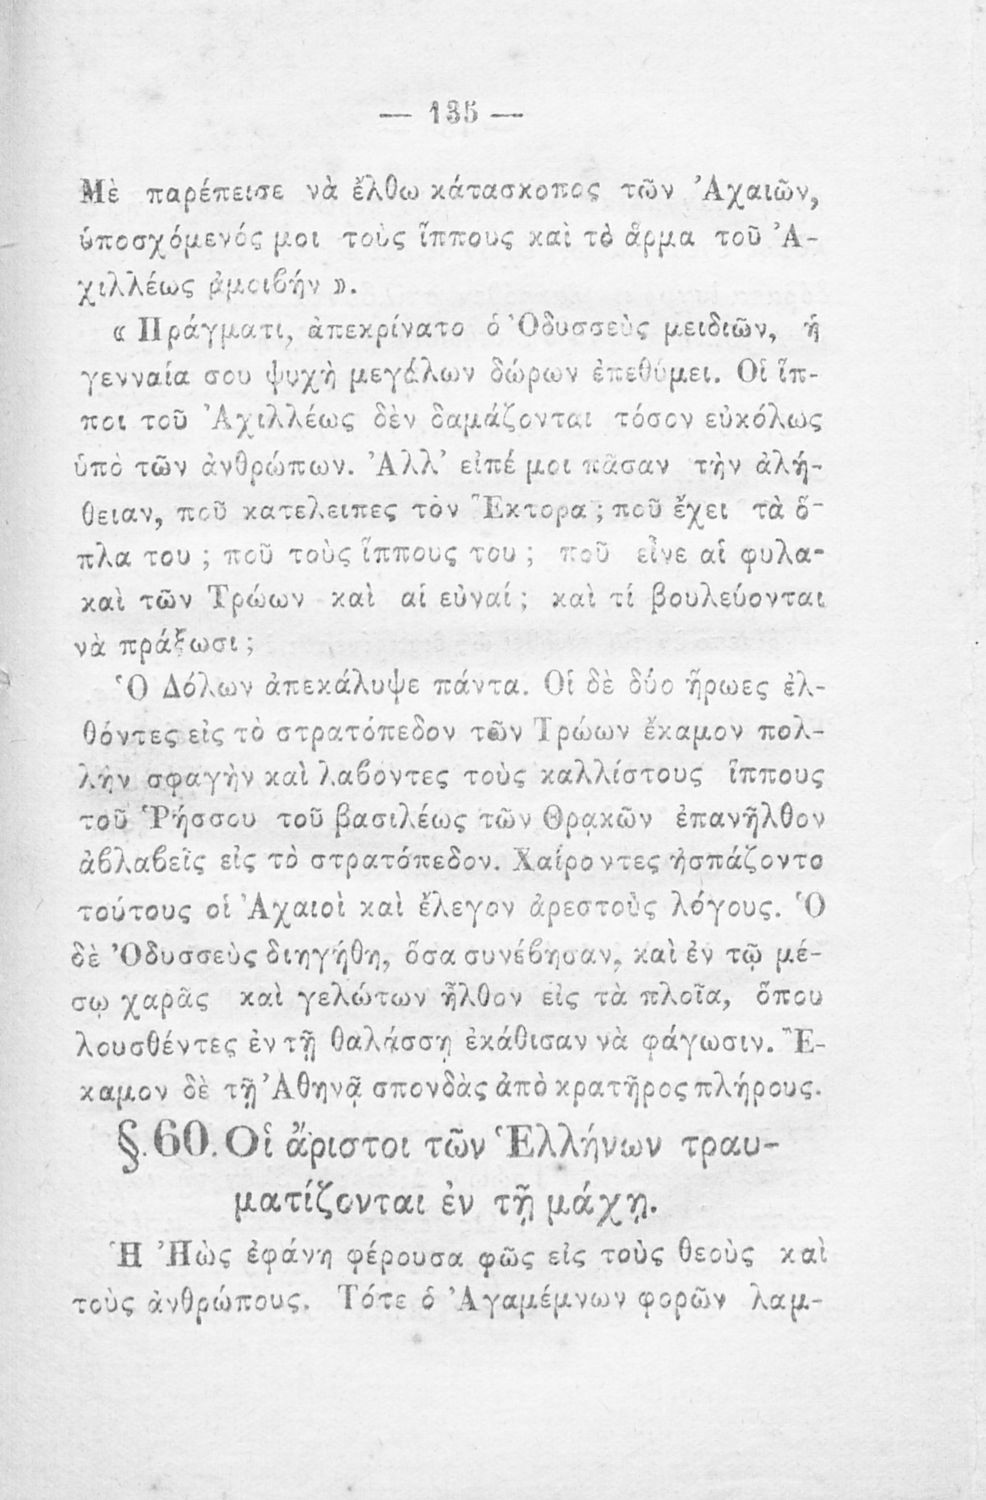 — 135 —
Μὲ παρέπεισε νὰ ἔλθω κάτασκοπος τῶν Ἀχαιῶν,
ὑποσχόμενός μοι τοὺς ἵππους καὶ τὸ ἅρμα τοῦ Ἀ-
χιλλέως ἀμοιβήν ».
« Πράγματι, ἀπεκρίνατο ὁ Ὀδυσσεὺς μειδιῶν, ἡ
γενναία σου ψυχὴ μεγάλων δώρων ἐπεθύμει. Οἱ ἵπ-
ποι τοῦ Ἀχιλλέως δὲν δαμάζονται τόσον εὐκόλως
ὑπὸ τῶν ἀνθρώπων. Ἀλλ' εἰπέ μοι πᾶσαν τὴν ἀλή-
θειαν, ποῦ κατελειπες τὸν Ἕκτορα ; ποῦ ἔχει τὰ ὅ-
πλα του ; ποῦ τοὺς ἵππους του ; ποῦ εἶνε αἱ φυλα-
καὶ τῶν Τρώων καὶ αἱ εὐναί ; καὶ τί βουλεύονται
νὰ πράξωσι ;
Ὁ Δόλων ἀπεκάλυψε πάντα. Οἱ δὲ δύο ἥρωες ἐλ-
θόντες εἰς τὸ στρατόπεδον τῶν Τρώων ἔκαμον πολ-
λὴν σφαγὴν καὶ λαβοντες τοὺς καλλίστους ἵππους
τοῦ Ῥήσσου τοῦ βασιλέως τῶν Θρακῶν ἐπανῆλθον
ἀβλαβεῖς εἰς τὸ στρατόπεδον. Χαίροντες ἠσπάζοντο
τούτους οἱ Ἀχαιοὶ καὶ ἔλεγον ἀρεστοὺς λόγους. Ὁ
δὲ Ὀδυσσεὺς διηγήθη, ὅσα συνέβησαν, καὶ ἐν τῷ μέ-
σῳ χαρᾶς καὶ γελώτων ἦλθον εἰς τὰ πλοῖα, ὅπου
λουσθέντες ἐν τῇ θαλάσσῃ ἐκάθισαν νὰ φάγωσιν. Ἔ-
καμον δὲ τῇ Ἀθηνᾷ σπονδὰς ἀπὸ κρατῆρος πλήρους.
§. 60. Οἱ ἄριστοι τῶν Ἑλλήνων τραυ-
ματίζονται ἐν τῇ μάχῃ.
Ἡ Ἠὼς ἐφάνη φέρουσα φῶς εἰς τοὺς θεοὺς καὶ
τοὺς ἀνθρώπους. Τότε ὁ Ἀγαμέμνων φορῶν λαμ-